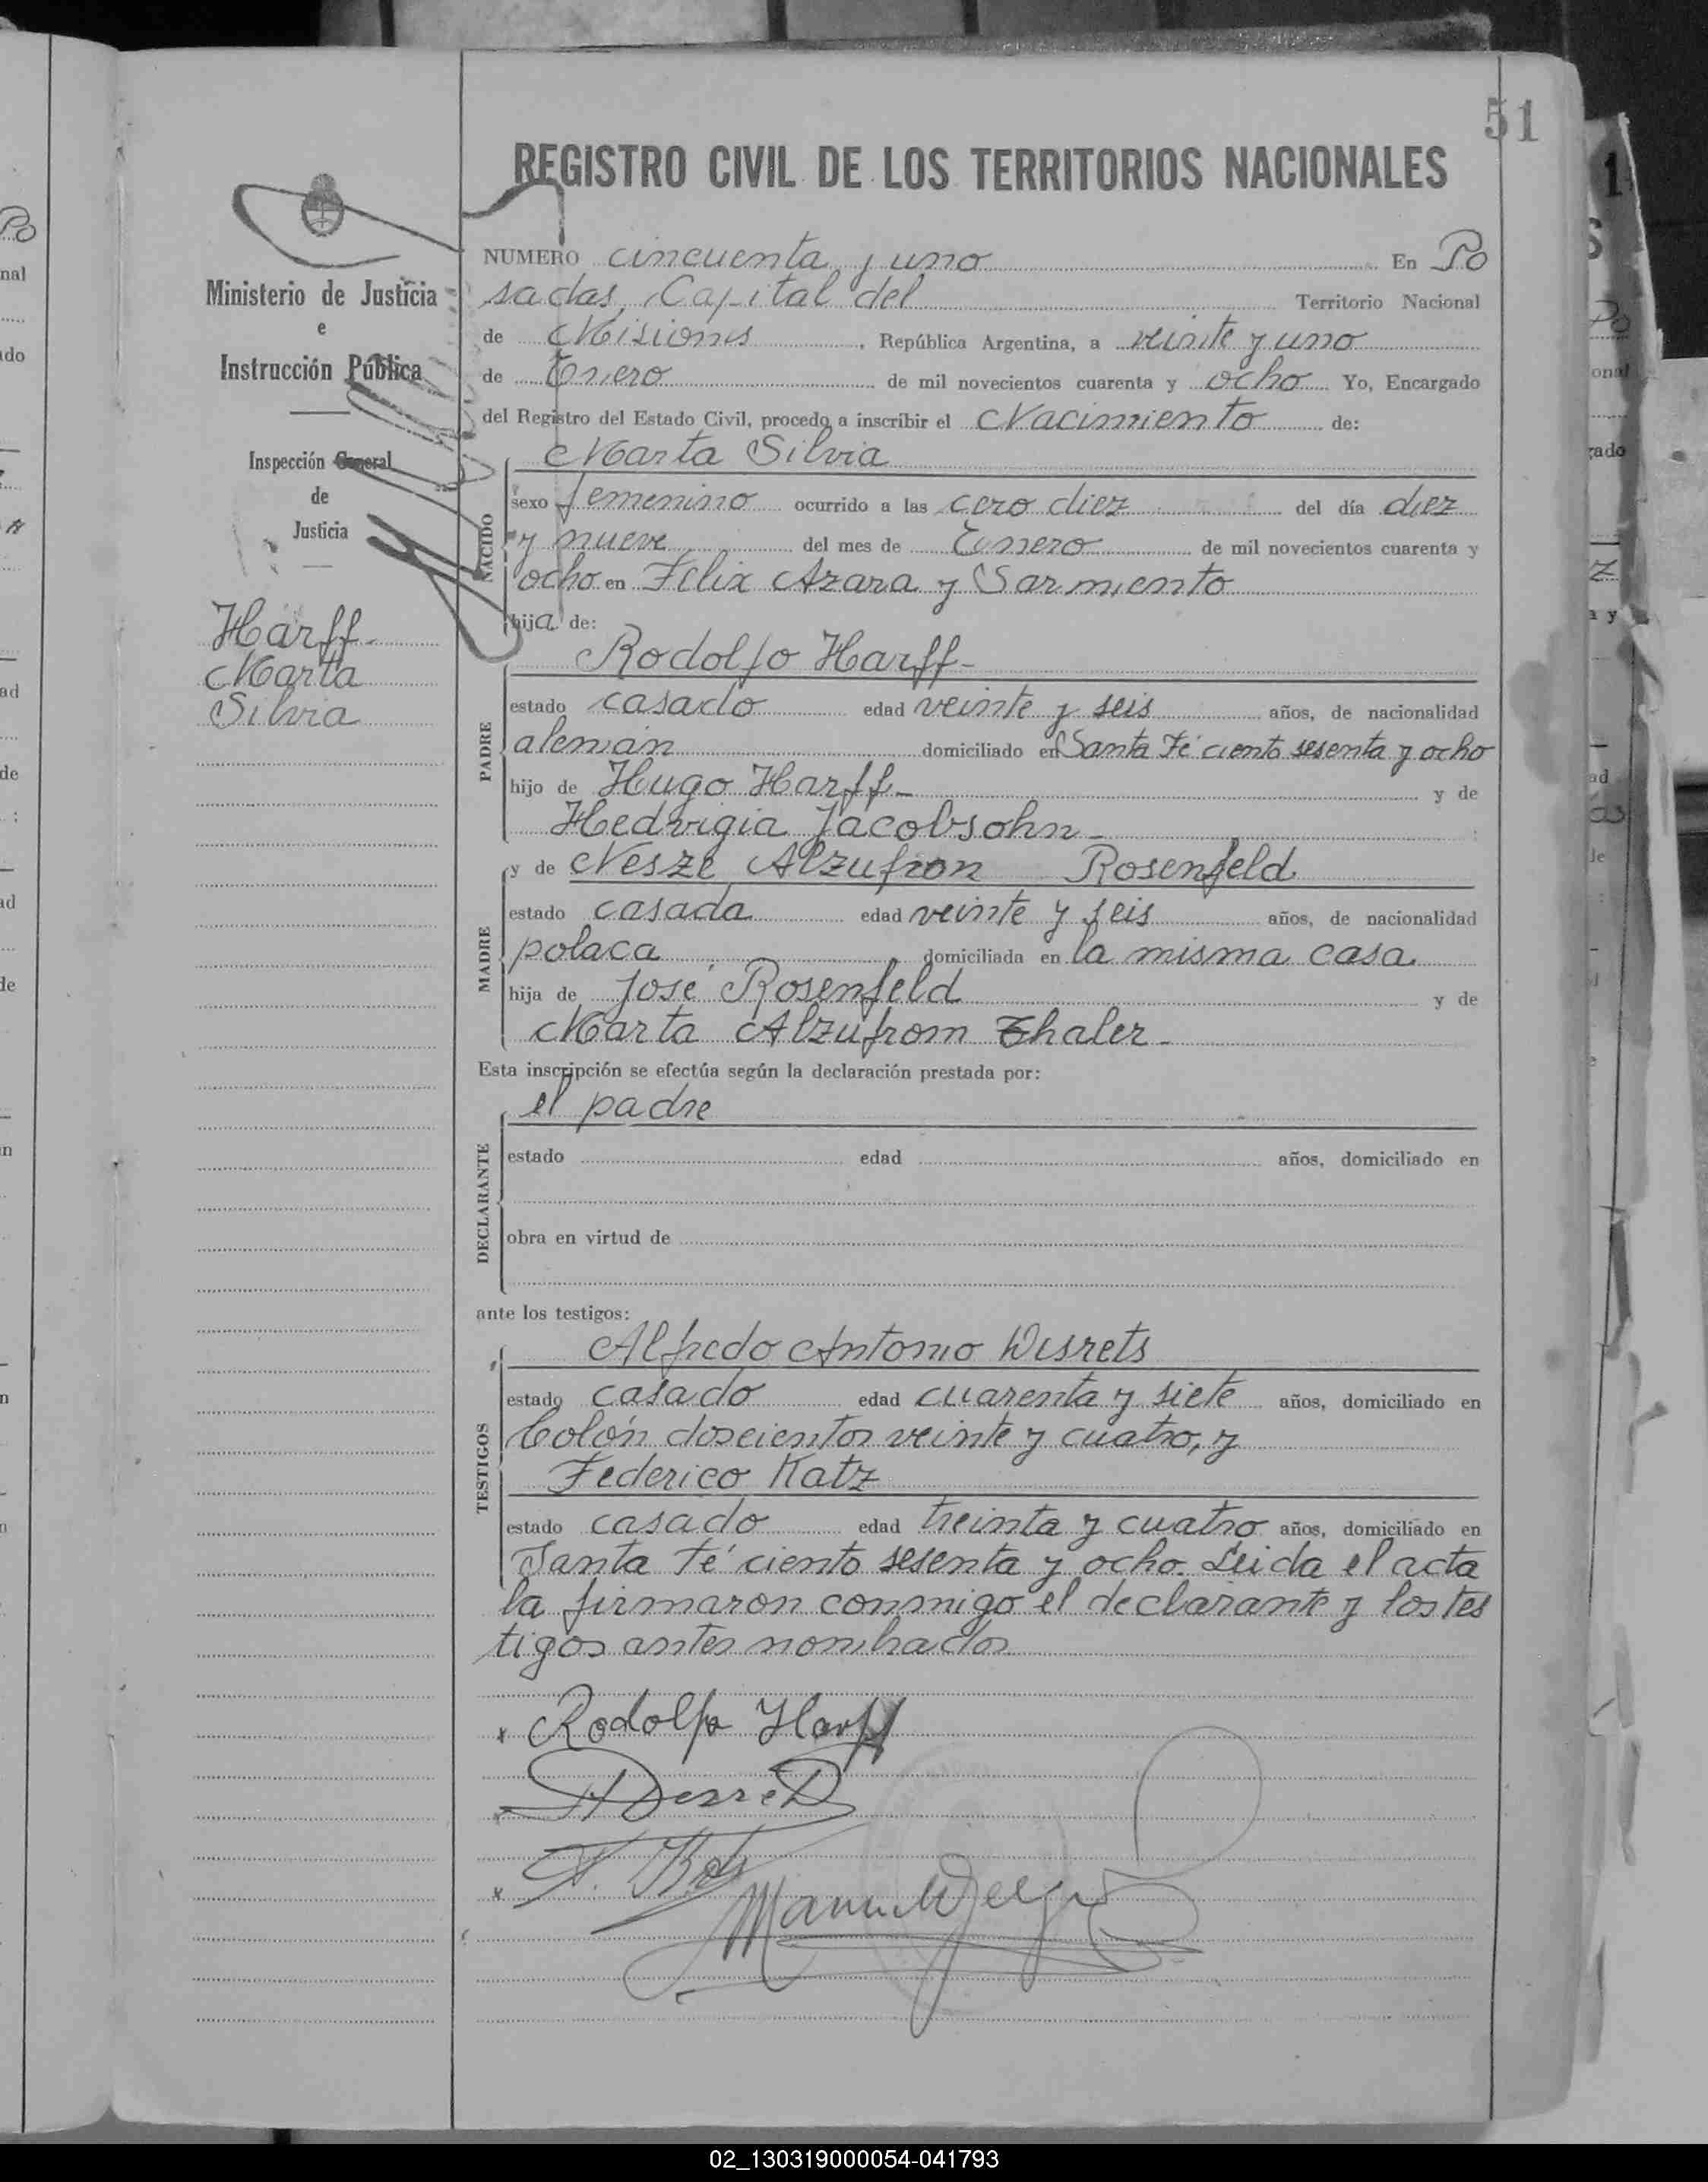 51
REGISTRO CIVIL DE LOS TERRITORIOS NACIONALES
Ministerio de Justicia
e
Instrucción Pública
Inspección General
de
Justicia
Harff-
Marta
Silvia
NUMERO cincuenta y uno En Po
sadas, Capital del Territorio Nacional
de Misiones, República Argentina, a veinte y uno
de Enero de mil novecientos cuarenta y ocho Yo, Encargado
del Registro del Estado Civil, procedo a inscribir el Nacimiento de:
Marta Silvia
NACIDO
sexo femenino ocurrido a las cero diez del día diez
y nueve del mes de Enero de mil novecientos cuarenta y
ocho en Félix Azara y Sarmiento
hija de:
Rodolfo Harff-
PADRE
estado casado edad veinte y seis años, de nacionalidad
alemán domiciliado en Santa Fé ciento sesenta y ocho
hijo de Hugo Harff- y de
Hedvigia Jacobsohn-
MADRE
y de Nesze Alzufron Rosenfeld
estado casada edad veinte y seis años, de nacionalidad
polaca domiciliada en la misma casa
hija de José Rosenfeld y de
Marta Alzufrom Thaler-
Esta inscripción se efectúa según la declaración prestada por:
el padre
DECLARANTE
estado edad años, domiciliado en
obra en virtud de
ante los testigos:
Alfredo Antonio
TESTIGOS
estado casado edad cuarenta y siete años, domiciliado en
Colón doscientos veinte y cuatro, y
Federico Katz
estado casado edad treinta y cuatro años, domiciliado en
Santa Fé ciento sesenta y ocho. Leida el acta
la firmaron conmigo el declarante y los tes
tigos antes nombrados
x Rodolfo Harff
02_130319000054-041793